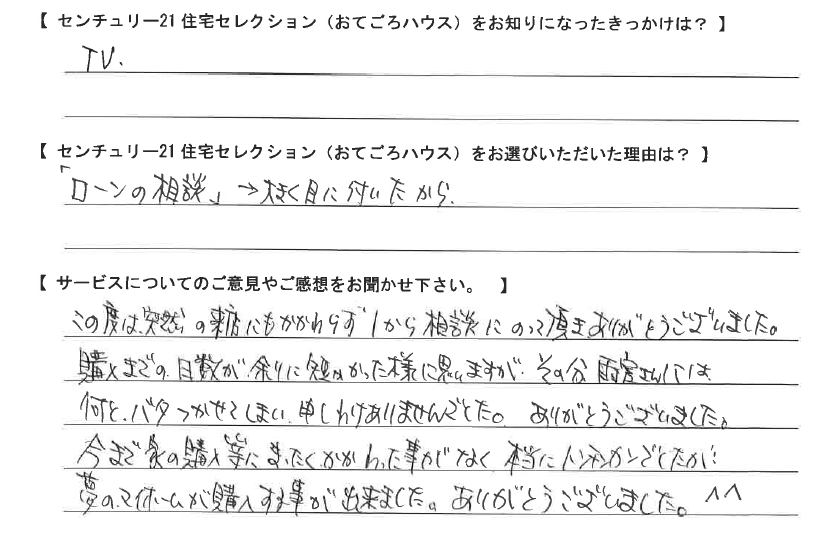 【 センチュリー21 住宅セレクション（おてごろハウス）をお知りになったきっかけは？ 】
TV.
【 センチュリー21 住宅セレクション（おてごろハウス）をお選びいただいた理由は？ 】
「ローンの相談」→大きく目に付いたから.
【 サービスについてのご意見やご感想をお聞かせ下さい。 】
この度は、突然の来店にもかかわらず1から相談にのって頂きありがとうございました。
購入までの日数が余りに短かかった様に思いますが その分 雨宮さんには
何と、バタつかせてしまい、申しわけありませんでした。 ありがとうございました。
今まで家の購入等にまったくかかわった事がなく 本当に でしたが
夢のマイホームが購入する事が出来ました。ありがとうございました。^^